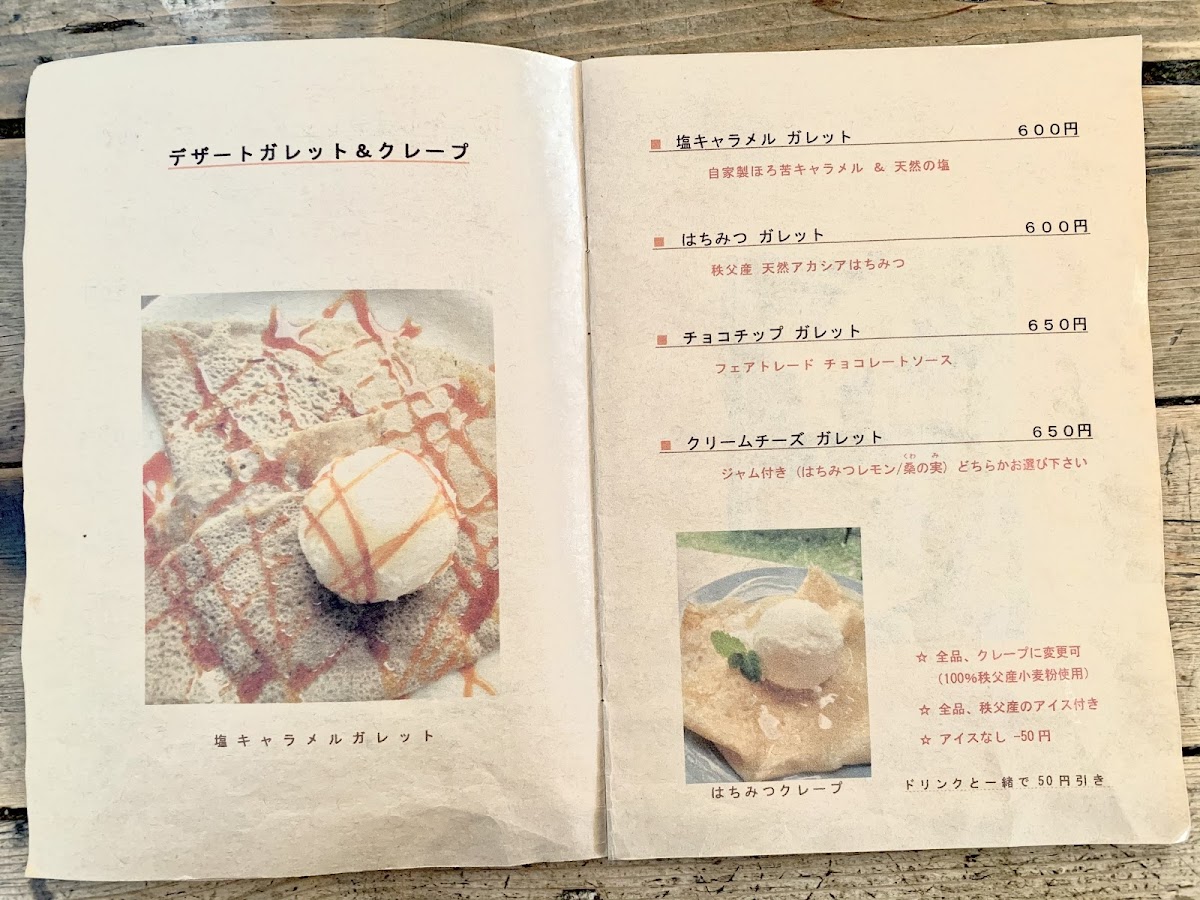 デザートガレット&クレープ
塩キャラメルガレット
■ 塩キャラメル ガレット 600円
自家製ほろ苦キャラメル & 天然の塩
■ はちみつ ガレット 600円
秩父産 天然アカシアはちみつ
■ チョコチップ ガレット 650円
フェアトレード チョコレートソース
■ クリームチーズ ガレット 650円
くわ み
ジャム付き(はちみつレモン/桑の実)どちらかお選び下さい
☆ 全品、クレープに変更可
(100%秩父産小麦粉使用)
☆ 全品、秩父産のアイス付き
☆ アイスなし -50円
はちみつクレープ
ドリンクと一緒で50円引き